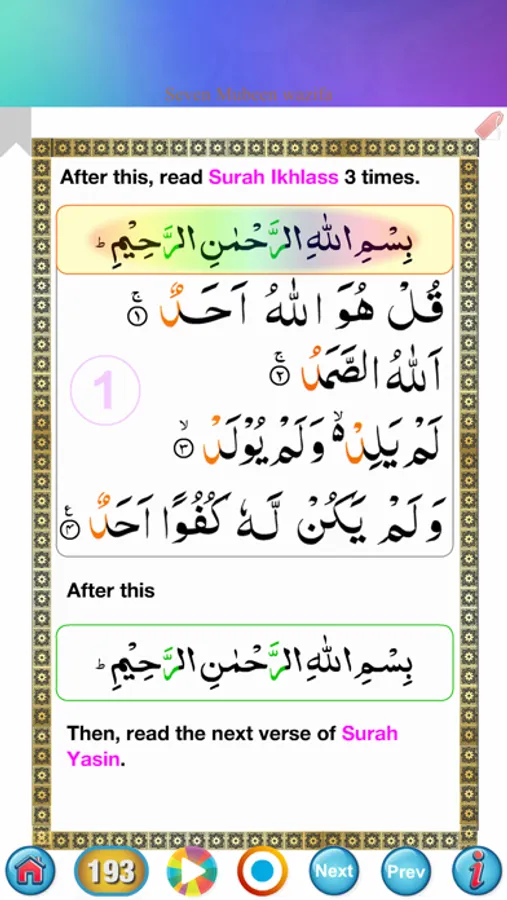 Seven Mubeen wazifa
After this, read Surah Ikhlass 3 times.
بِسْمِ اللّٰهِ الرَّحْمٰنِ الرَّحِیْمِ ؕ
قُلْ هُوَ اللّٰهُ اَحَدٌ ۚ ۱
اَللّٰهُ الصَّمَدُ ۚ ۲
لَمْ یَلِدْ ۙ۬ وَلَمْ یُوْلَدْ ۙ ۳
وَلَمْ یَكُنْ لَّهٗ كُفُوًا اَحَدٌ ۠ ۴
1
After this
بِسْمِ اللّٰهِ الرَّحْمٰنِ الرَّحِیْمِ ؕ
Then, read the next verse of Surah
Yasin.
193
Next
Prev
i